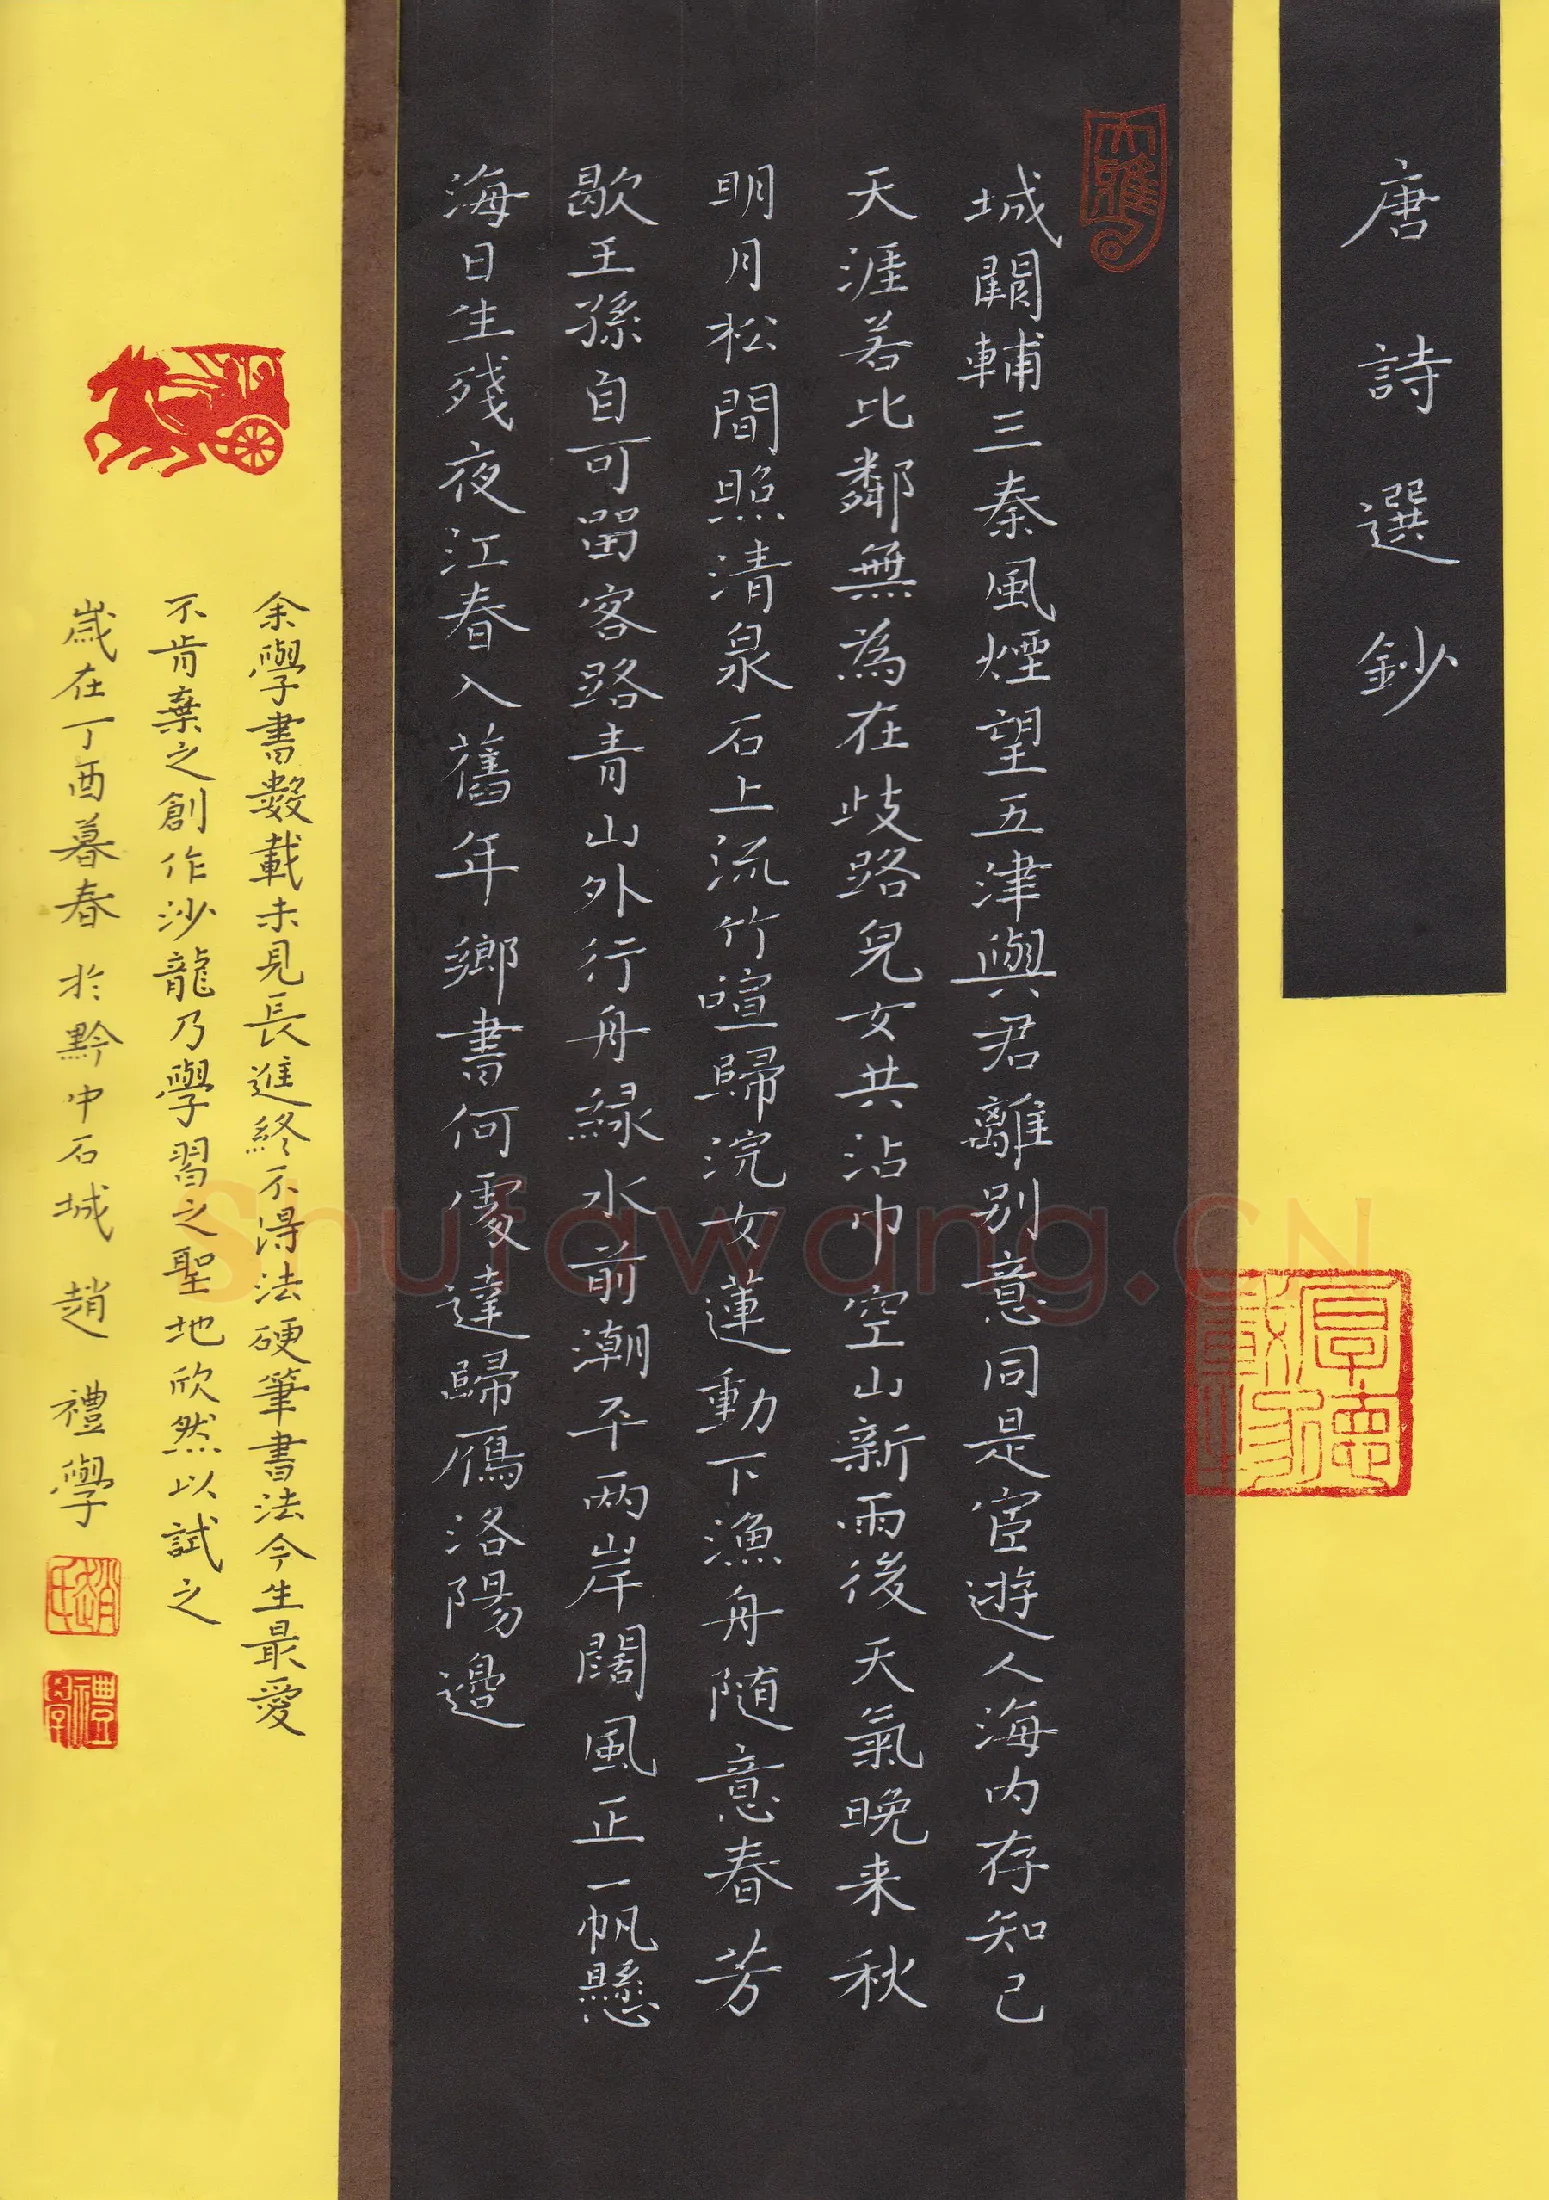 唐詩選鈔
城闕輔三秦風煙望五津與君離別意同是宦遊人海內存知己
天涯若比鄰無為在歧路兒女共沾巾空山新雨後天氣晚来秋
明月松間照清泉石上流竹喧歸浣女蓮動下漁舟随意春芳
歇王孫自可留客路青山外行舟緑水前潮平两岸闊風正一帆懸
海日生殘夜江春入舊年鄉書何處達歸雁洛陽邊
余學書數載未見長進終不得法硬筆書法今生最愛
不肯棄之創作沙龍乃學習之聖地欣然以試之
歲在丁酉暮春於黔中石城趙禮學
趙氏
禮學
厚德載物
大雅
Shufawang.CN